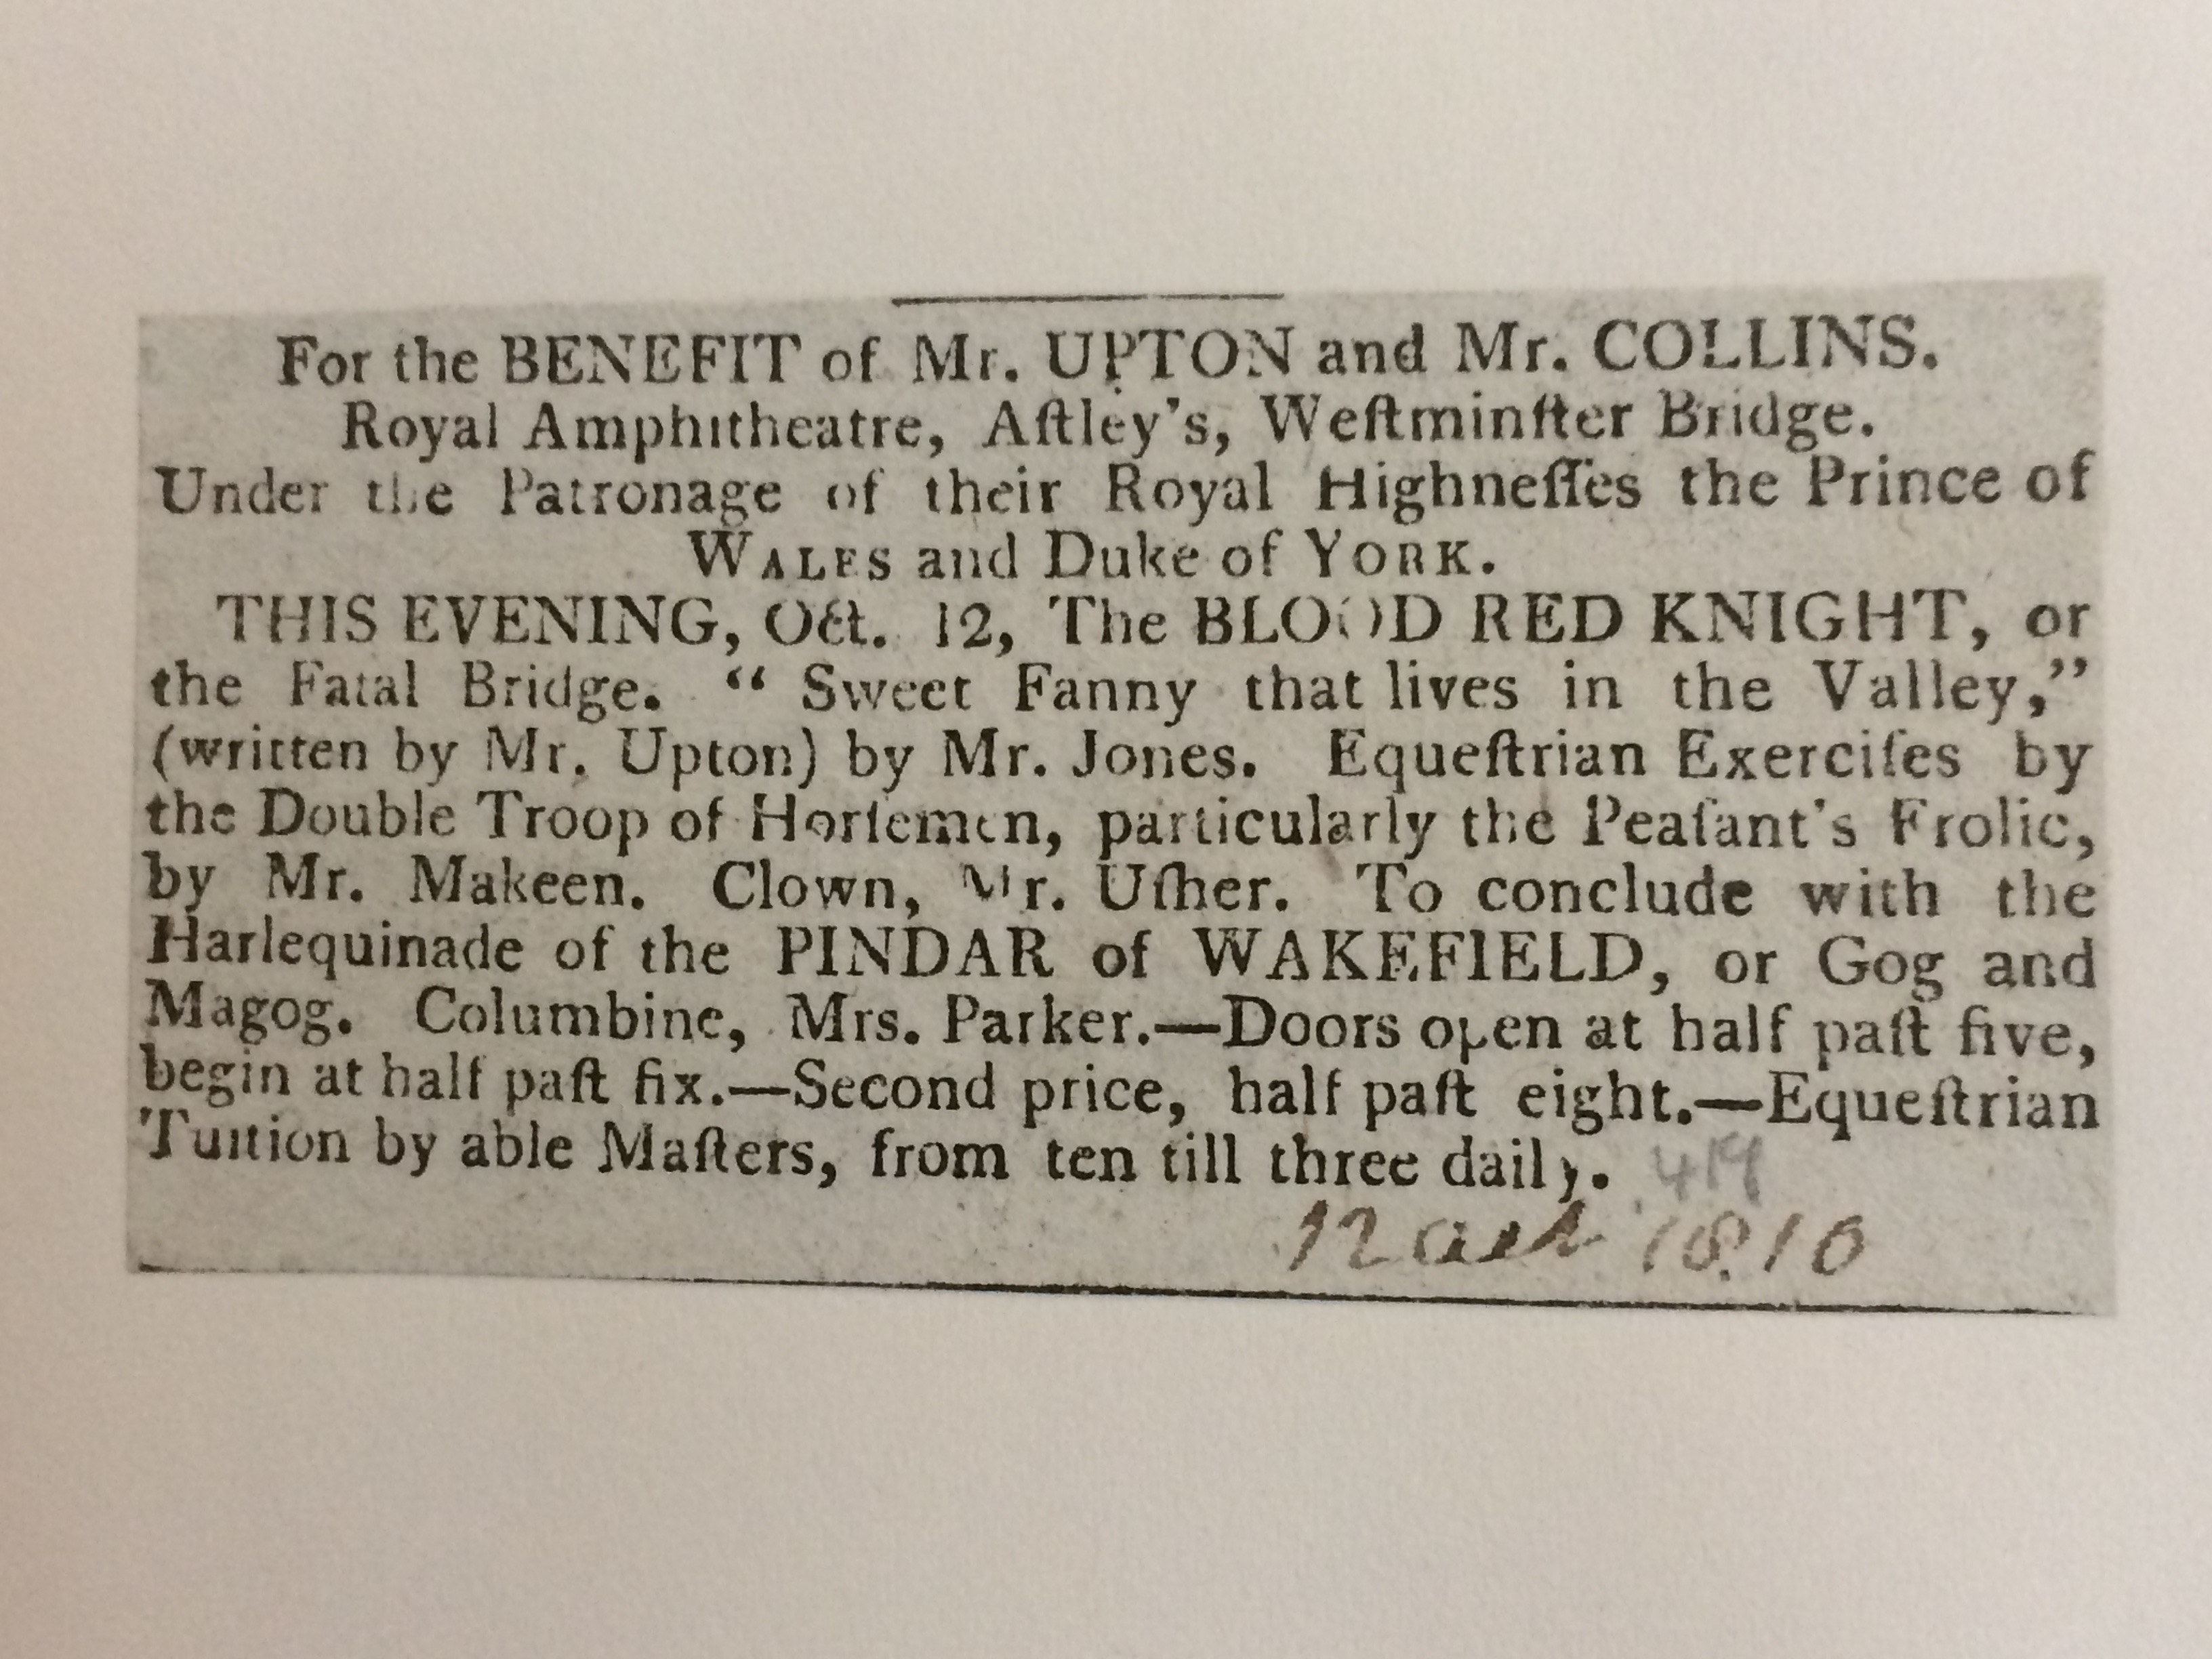 For the BENEFIT of Mr. UPTON and Mr. COLLINS.
Royal Amphitheatre, Aſtley's, Weſtminſter Bridge.
Under the Patronage of their Royal Highneſſes the Prince of
WALES and Duke of YORK.
THIS EVENING, Oct. 12, The BLOOD RED KNIGHT, or
the Fatal Bridge. “ Sweet Fanny that lives in the Valley,”
(written by Mr. Upton) by Mr. Jones. Equeſtrian Exerciſes by
the Double Troop of Horſemen, particularly the Peaſant's Frolic,
by Mr. Makeen. Clown, Mr. Uſher. To conclude with the
Harlequinade of the PINDAR of WAKEFIELD, or Gog and
Magog. Columbine, Mrs. Parker.—Doors open at half paſt five,
begin at half paſt ſix.—Second price, half paſt eight.—Equeſtrian
Tuition by able Maſters, from ten till three daily. 419
12 Oct 1810